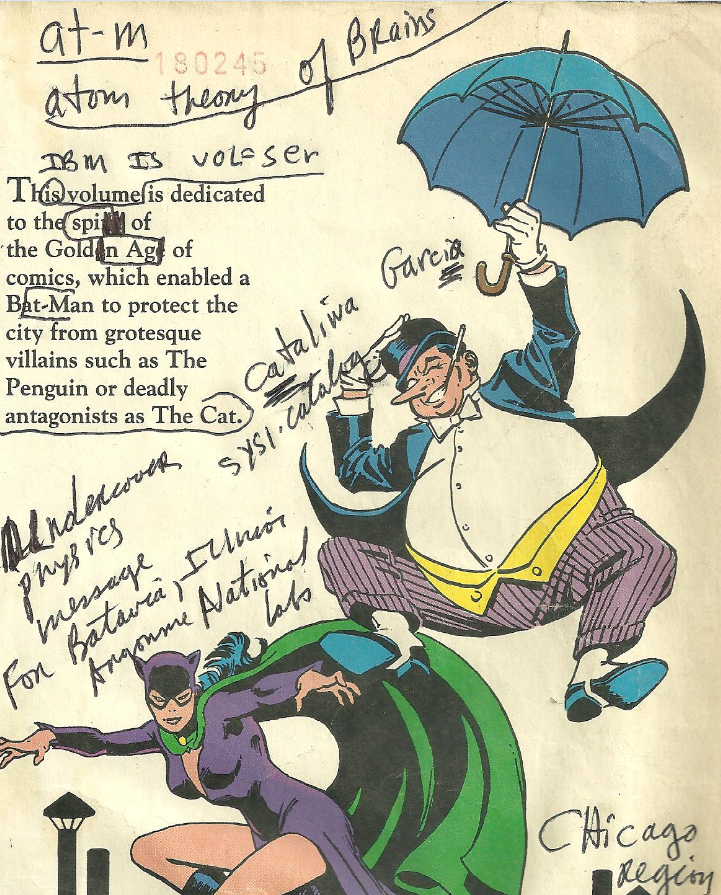 at-m
180245
atom theory of Brains
IBM IS VOL=SER
This volume is dedicated
to the spirit of
the Golden Age of
comics, which enabled a
Bat-Man to protect the
city from grotesque
villains such as The
Penguin or deadly
antagonists as The Cat.
Garcia
Cataliwa
sysi.catalog
Undercover
physics
message
For Batavia, Illinior
Argonne National
labs
CHicago
region